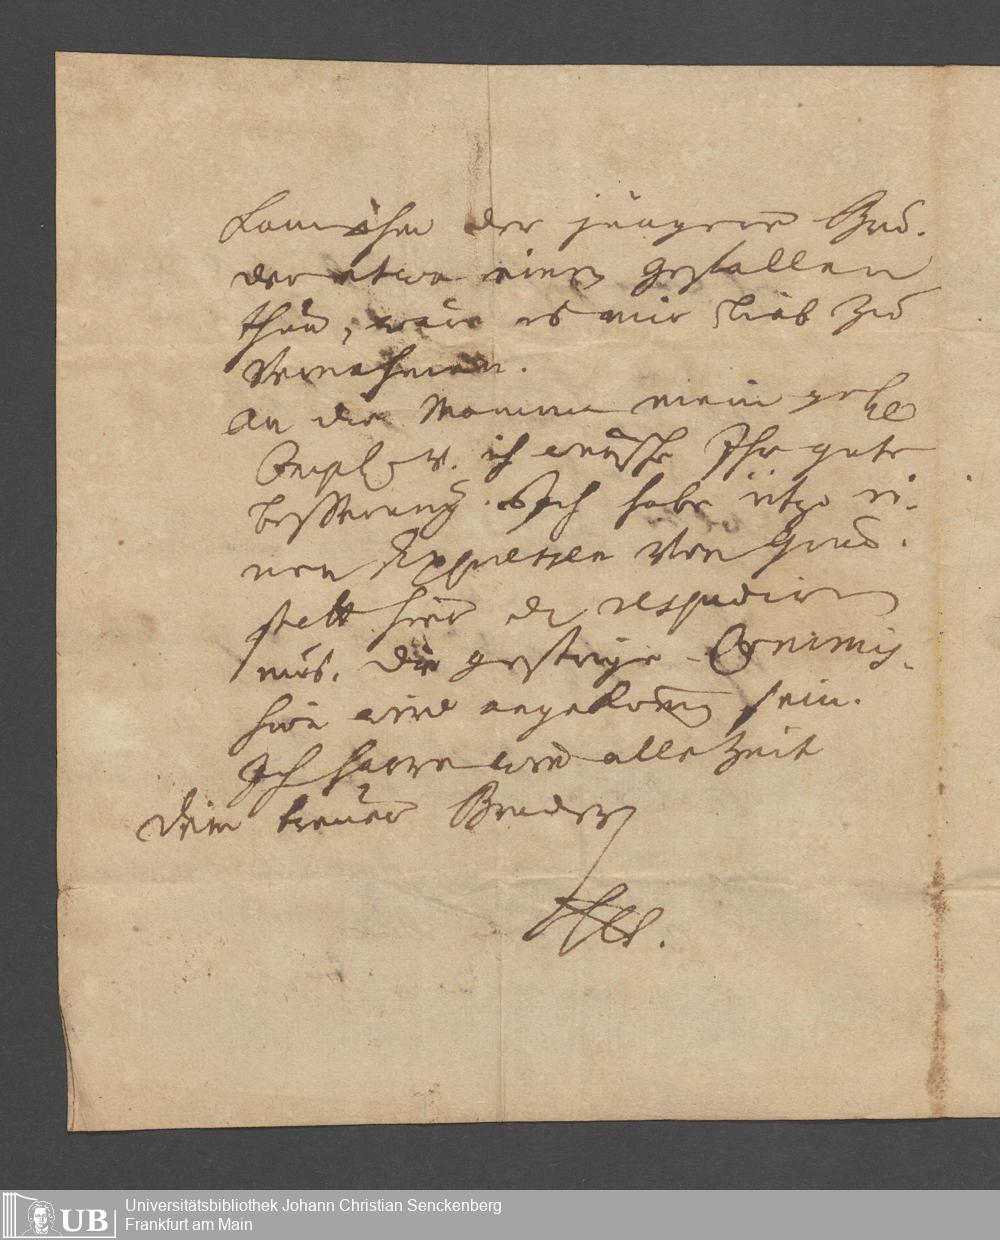 kan ihm der jüngere Bru-
der etwa einen gefallen
thun, wäre es mir lieb zu
vernehmen.
An die Mamma mein gehs.
Empl. v. ich wünsche Ihr gute
besserung. Ich habe itzo ei-
nen Expressen von
hier
mus. die gestrige
wird angekom̅en sein.
Ich harre und allezeit
Dein treuer Bruder
UB
Universitätsbibliothek Johann Christian Senckenberg
Frankfurt am Main